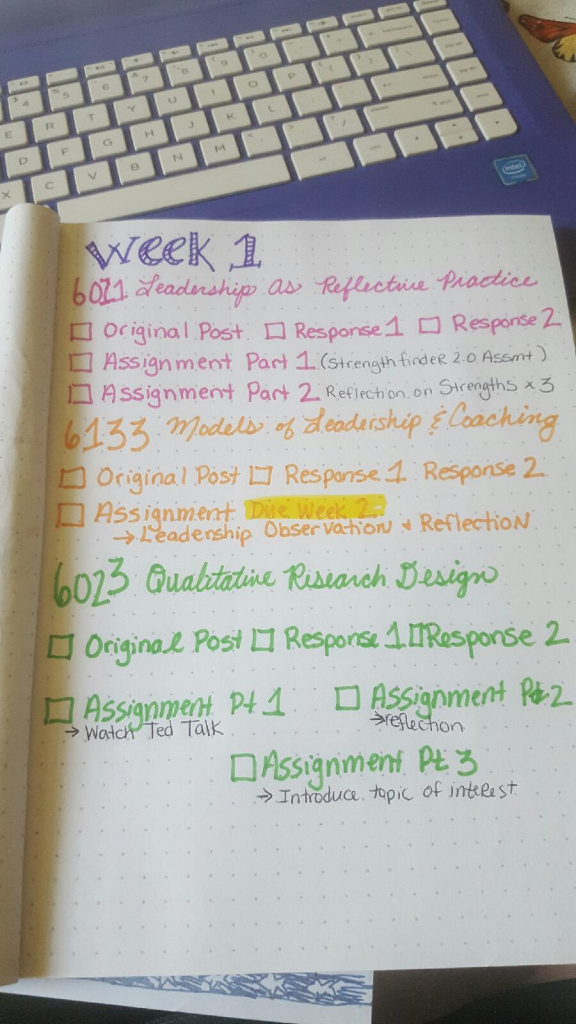 4 5 6 7 8 9 0
E R T Y U I O P
D F G H J K L
X C V B N M
intel
Week 1
6021 Leadership as Reflective Practice
Original Post Response 1 Response 2
Assignment Part 1 (Strengthfinder 2.0 Assmt)
Assignment Part 2 Reflection on Strengths x 3
6133 Models of Leadership & Coaching
Original Post Response 1 Response 2
Assignment Due Week 2
→ Leadership Observation + Reflection
6023 Qualitative Research Design
Original Post Response 1 Response 2
Assignment Pt 1 Assignment Pt 2
→ Watch Ted Talk →reflection
Assignment Pt 3
→ Introduce topic of interest